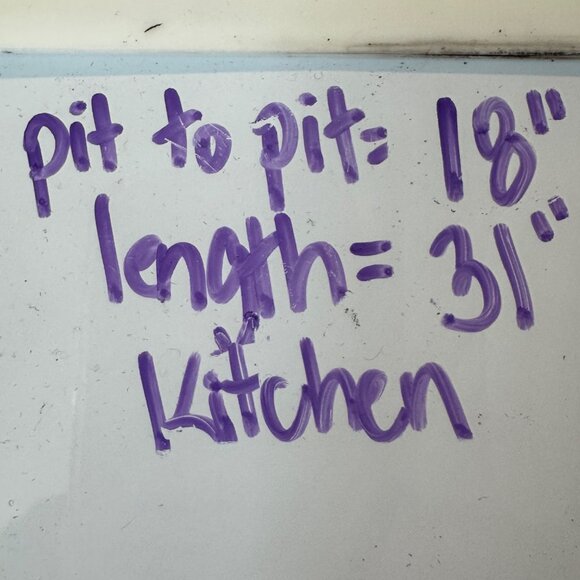 pit to pit= 18"
length= 31"
Kitchen